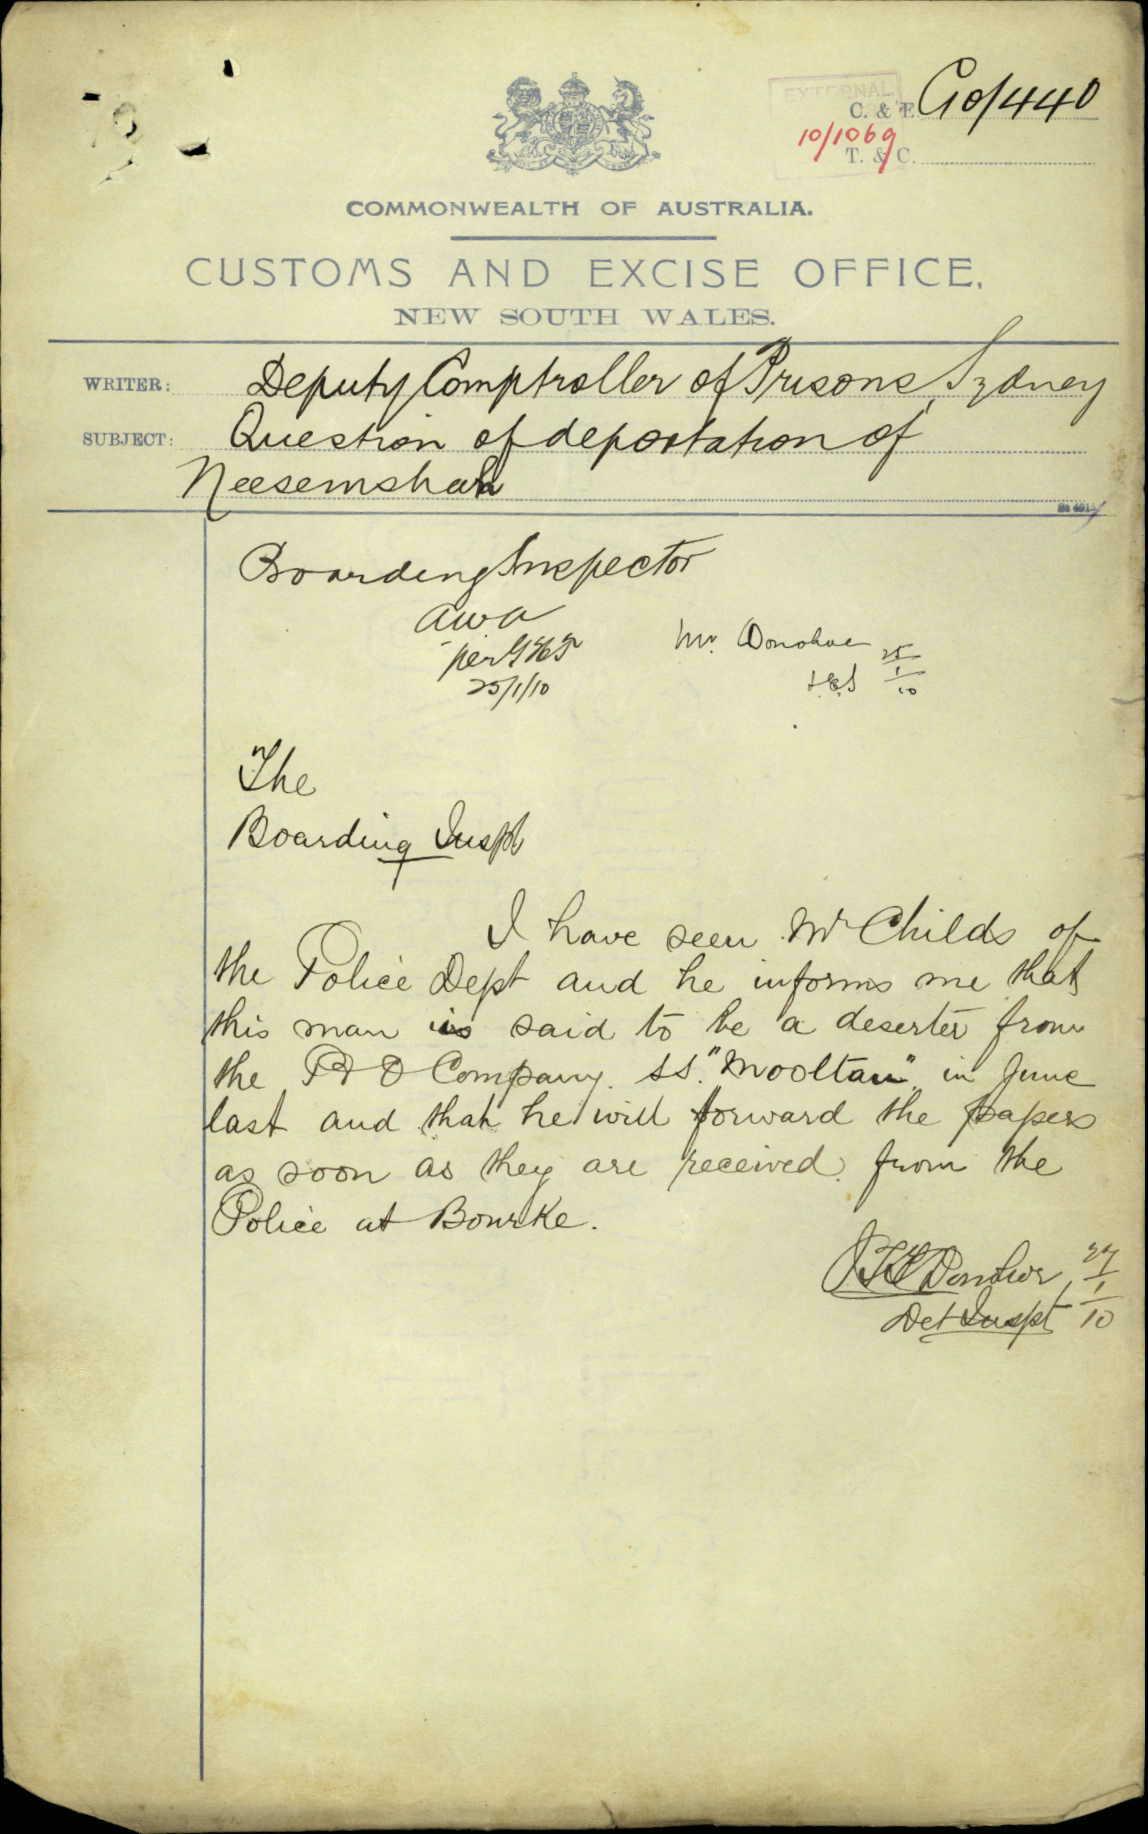 EXTERNAL
C. & E. G10/440
10/1069
T. & C.
COMMONWEALTH OF AUSTRALIA.
CUSTOMS AND EXCISE OFFICE,
NEW SOUTH WALES.
WRITER: Deputy Comptroller of Prisons, Sydney
SUBJECT: Question of deportation of
Neesemshah
Boarding Inspector
awa
per
25/1/10
Mr. Donohue
25/1/10
The
Boarding Inspt
I have seen Mr Childs of
the Police Dept and he informs me that
this man is said to be a deserter from
the P & O Company. SS. "Mooltan" in June
last and that he will forward the papers
as soon as they are received from the
Police at Bourke.
Donohue 27/1/10
Det Inspt